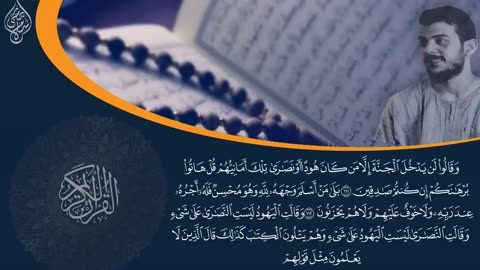 وَقَالُوا۟ لَن يَدْخُلَ ٱلْجَنَّةَ إِلَّا مَن كَانَ هُودًا أَوْ نَصَٰرَىٰ تِلْكَ أَمَانِيُّهُمْ قُلْ هَاتُوا۟
بُرْهَٰنَكُمْ إِن كُنتُمْ صَٰدِقِينَ ١١١ بَلَىٰ مَنْ أَسْلَمَ وَجْهَهُۥ لِلَّهِ وَهُوَ مُحْسِنٌ فَلَهُۥٓ أَجْرُهُۥ
عِندَ رَبِّهِۦ وَلَا خَوْفٌ عَلَيْهِمْ وَلَا هُمْ يَحْزَنُونَ ١١٢ وَقَالَتِ ٱلْيَهُودُ لَيْسَتِ ٱلنَّصَٰرَىٰ عَلَىٰ شَىْءٍ
وَقَالَتِ ٱلنَّصَٰرَىٰ لَيْسَتِ ٱلْيَهُودُ عَلَىٰ شَىْءٍ وَهُمْ يَتْلُونَ ٱلْكِتَٰبَ كَذَٰلِكَ قَالَ ٱلَّذِينَ لَا
يَعْلَمُونَ مِثْلَ قَوْلِهِمْ
القرآن الكريم